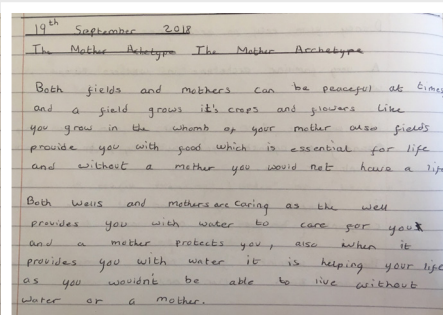 19th September 2018
The Mother Archetype The Mother Archetype
Both fields and mothers can be peaceful at times
and a field grows it's crops and flowers like
you grow in the whomb of your mother also fields
provide you with food which is essential for life
and without a mother you would not have a life
Both wells and mothers are caring as the well
provides you with water to care for you
and a mother protects you, also when it
provides you with water it is helping your life
as you wouldn't be able to live without
water or a mother.